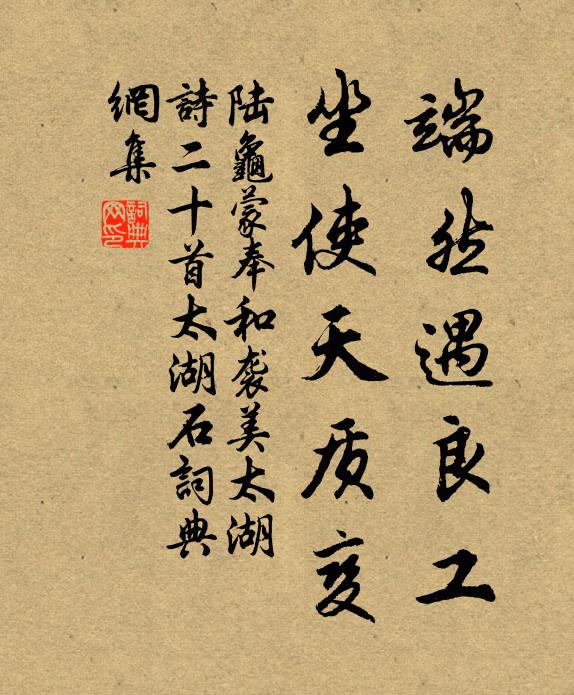 端然遇良工
坐使天质变
陆龜蒙奉和袭美太湖
詩二十首太湖石詞典
網集
詞典
网印